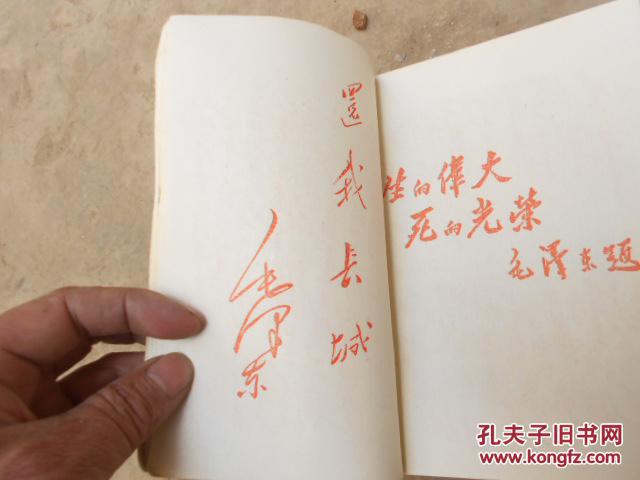 還我長城
毛泽东
生的偉大
死的光荣
毛澤东題
孔夫子旧书网
www.kongfz.com